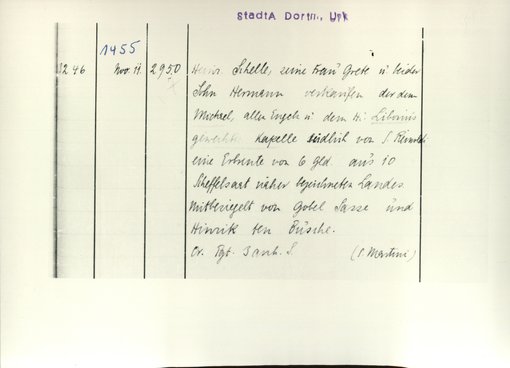 StadtA Dortm., Urk
1455
1246 Nov. 11. 2950 Heinr. Schelle, seine Frau Grete u. beider
Sohn Hermann verkaufen der dem
Michael, allen Engeln u. dem Hl. Liborius
geweihten Kapelle südlich von S. Reinoldi
eine Erbrente von 6 Gld. aus 10
Scheffelsaat näher bezeichneten Landes
Mitbesiegelt von Gobel Sasse und
Hinrik ten Büsche.
Or. Pgt. 3 anh. S. (S. Martini)